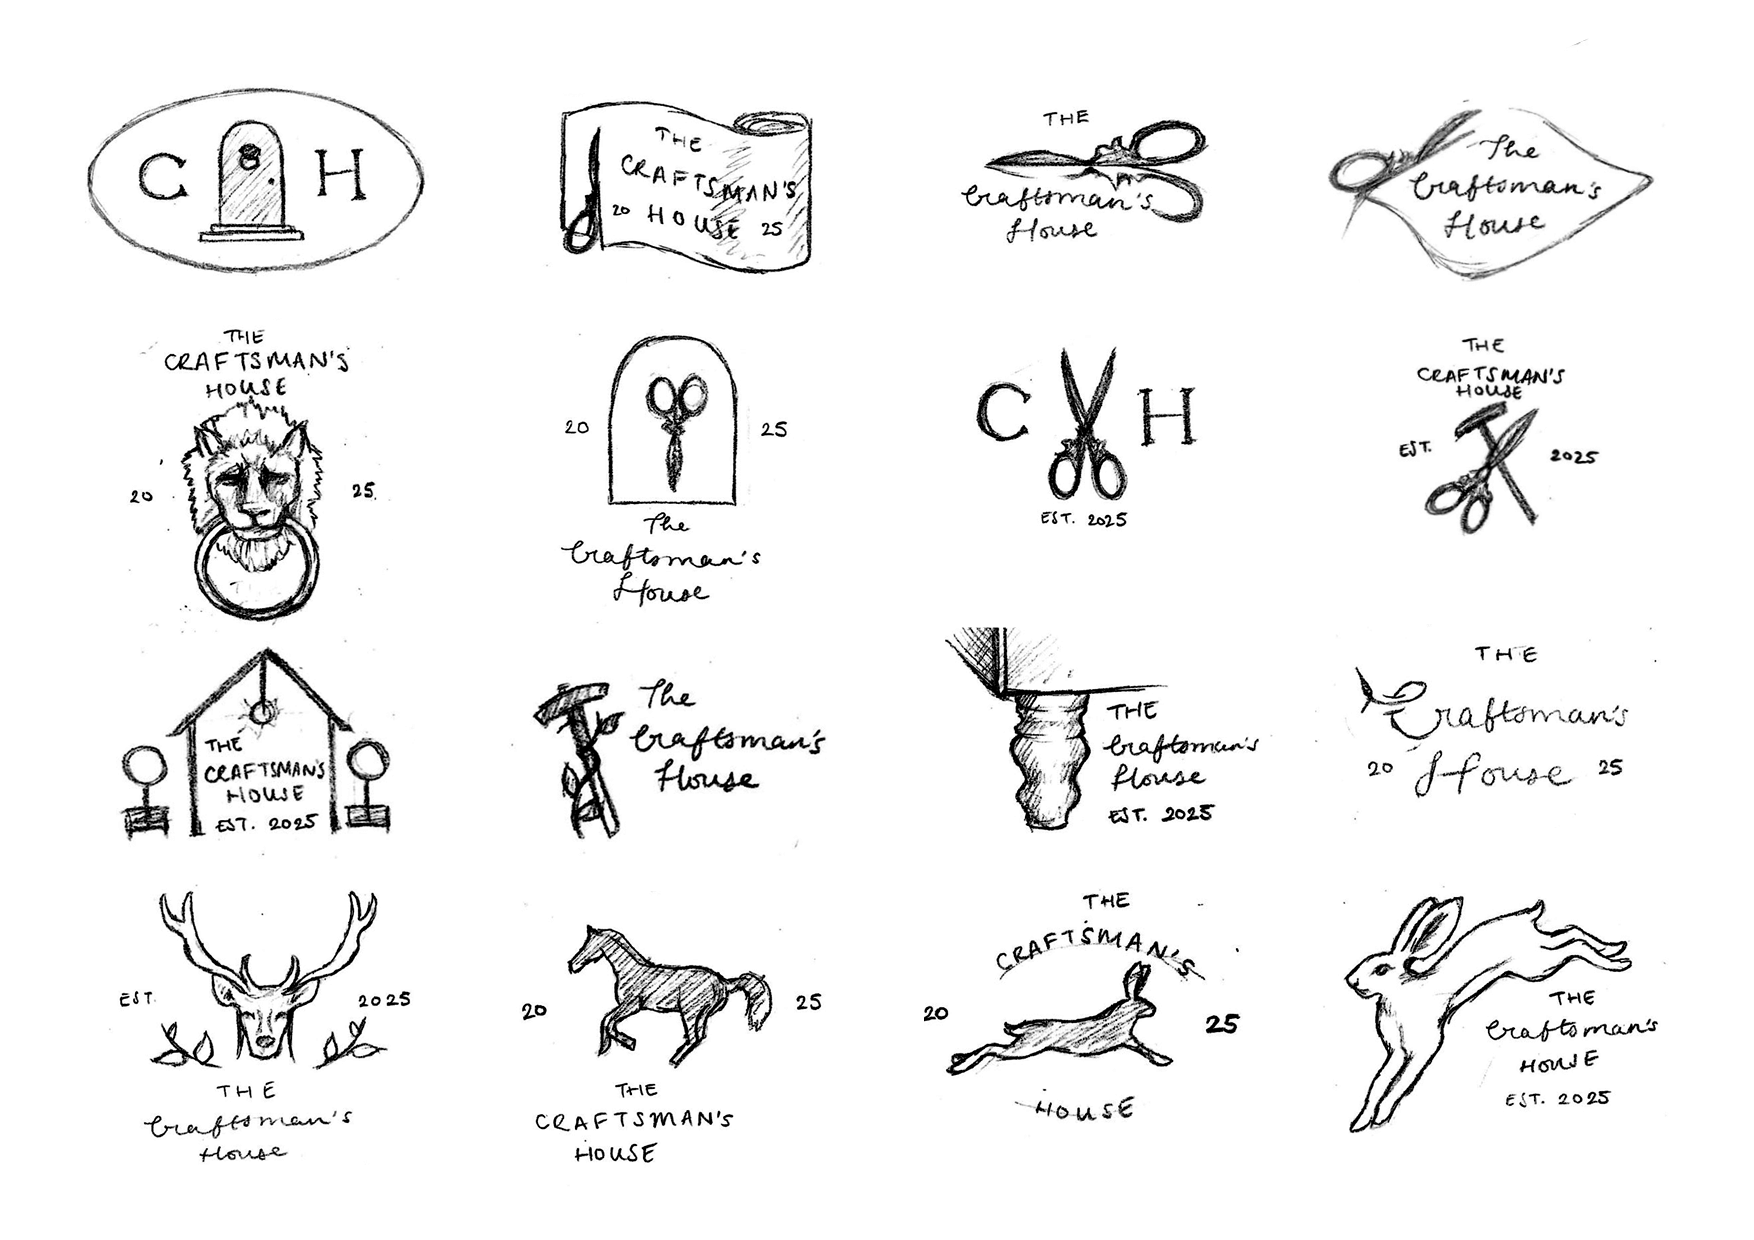 C H
THE
CRAFTSMAN'S
20 HOUSE 25
THE
Craftsman's
House
The
Craftsman's
House
THE
CRAFTSMAN'S
HOUSE
20 25
20 25
The
Craftsman's
House
C H
EST. 2025
THE
CRAFTSMAN'S
HOUSE
EST. 2025
THE
CRAFTSMAN'S
HOUSE
EST. 2025
The
Craftsman's
House
THE
Craftsman's
House
EST. 2025
THE
Craftsman's
20 House 25
EST. 2025
THE
Craftsman's
House
20 25
THE
CRAFTSMAN'S
HOUSE
THE
CRAFTSMAN'S
20 25
HOUSE
THE
Craftsman's
HOUSE
EST. 2025